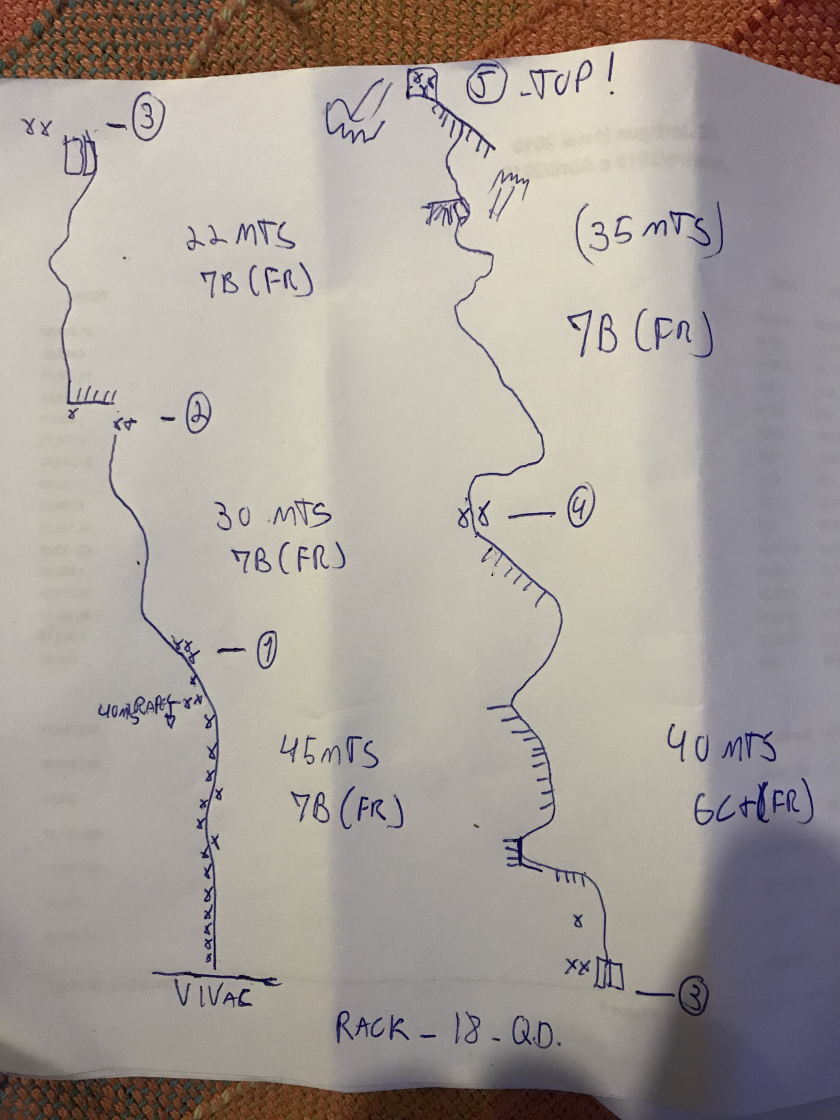 xx - 3
22 MTS
7B (FR)
x
xx - 2
30 MTS
7B (FR)
xx - 1
40 MTS RAPEL
45 MTS
7B (FR)
VIVAC
xx 5 - TOP!
(35 MTS)
7B (FR)
xx - 4
40 MTS
6C+ (FR)
x
xx - 3
RACK - 18 - Q.D.